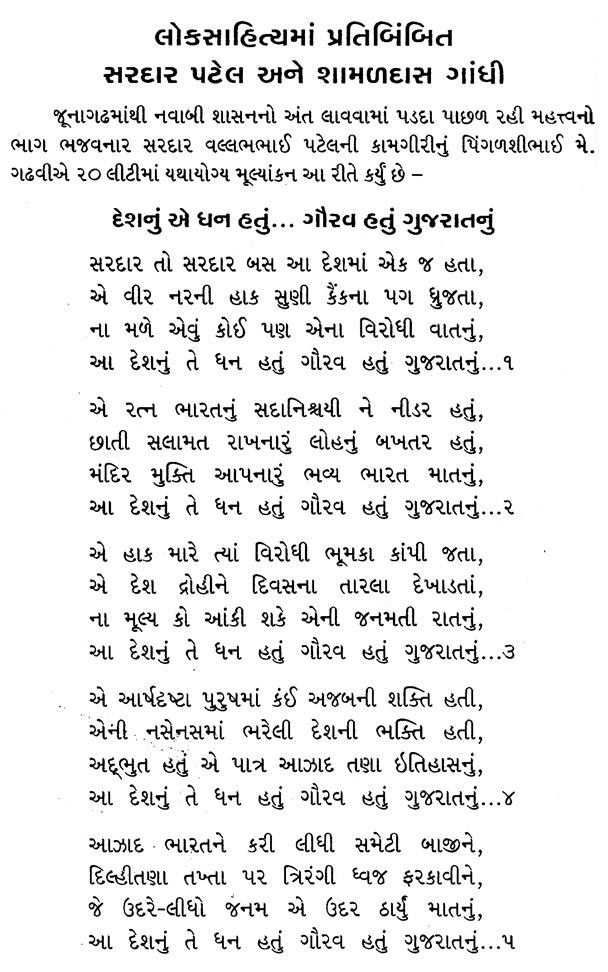 લોકસાહિત્યમાં પ્રતિબિંબિત
સરદાર પટેલ અને શામળદાસ ગાંધી
જૂનાગઢમાંથી નવાબી શાસનનો અંત લાવવામાં પડદા પાછળ રહી મહત્ત્વનો
ભાગ ભજવનાર સરદાર વલ્લભભાઈ પટેલની કામગીરીનું પિંગળશીભાઈ મે.
ગઢવીએ ૨૦ લીટીમાં યથાયોગ્ય મૂલ્યાંકન આ રીતે કર્યું છે –
દેશનું એ ધન હતું... ગૌરવ હતું ગુજરાતનું
સરદાર તો સરદાર બસ આ દેશમાં એક જ હતા,
એ વીર નરની હાક સુણી કૈંકના પગ ધ્રુજતા,
ના મળે એવું કોઈ પણ એના વિરોધી વાતનું,
આ દેશનું તે ધન હતું ગૌરવ હતું ગુજરાતનું...૧
એ રત્ન ભારતનું સદાનિશ્ચયી ને નીડર હતું,
છાતી સલામત રાખનારું લોહનું બખતર હતું,
મંદિર મુક્તિ આપનારું ભવ્ય ભારત માતનું,
આ દેશનું તે ધન હતું ગૌરવ હતું ગુજરાતનું...૨
એ હાક મારે ત્યાં વિરોધી ભૂમકા કાંપી જતા,
એ દેશ દ્રોહીને દિવસના તારલા દેખાડતાં,
ના મૂલ્ય કો આંકી શકે એની જનમતી રાતનું,
આ દેશનું તે ધન હતું ગૌરવ હતું ગુજરાતનું...૩
એ આર્ષદષ્ટા પુરુષમાં કંઈ અજબની શક્તિ હતી,
એની નસેનસમાં ભરેલી દેશની ભક્તિ હતી,
અદ્ભુત હતું એ પાત્ર આઝાદ તણા ઇતિહાસનું,
આ દેશનું તે ધન હતું ગૌરવ હતું ગુજરાતનું...૪
આઝાદ ભારતને કરી લીધી સમેટી બાજીને,
દિલ્હીતણા તખ્તા પર ત્રિરંગી ધ્વજ ફરકાવીને,
જે ઉદરે-લીધો જનમ એ ઉદર ઠાર્યું માતનું,
આ દેશનું તે ધન હતું ગૌરવ હતું ગુજરાતનું...૫